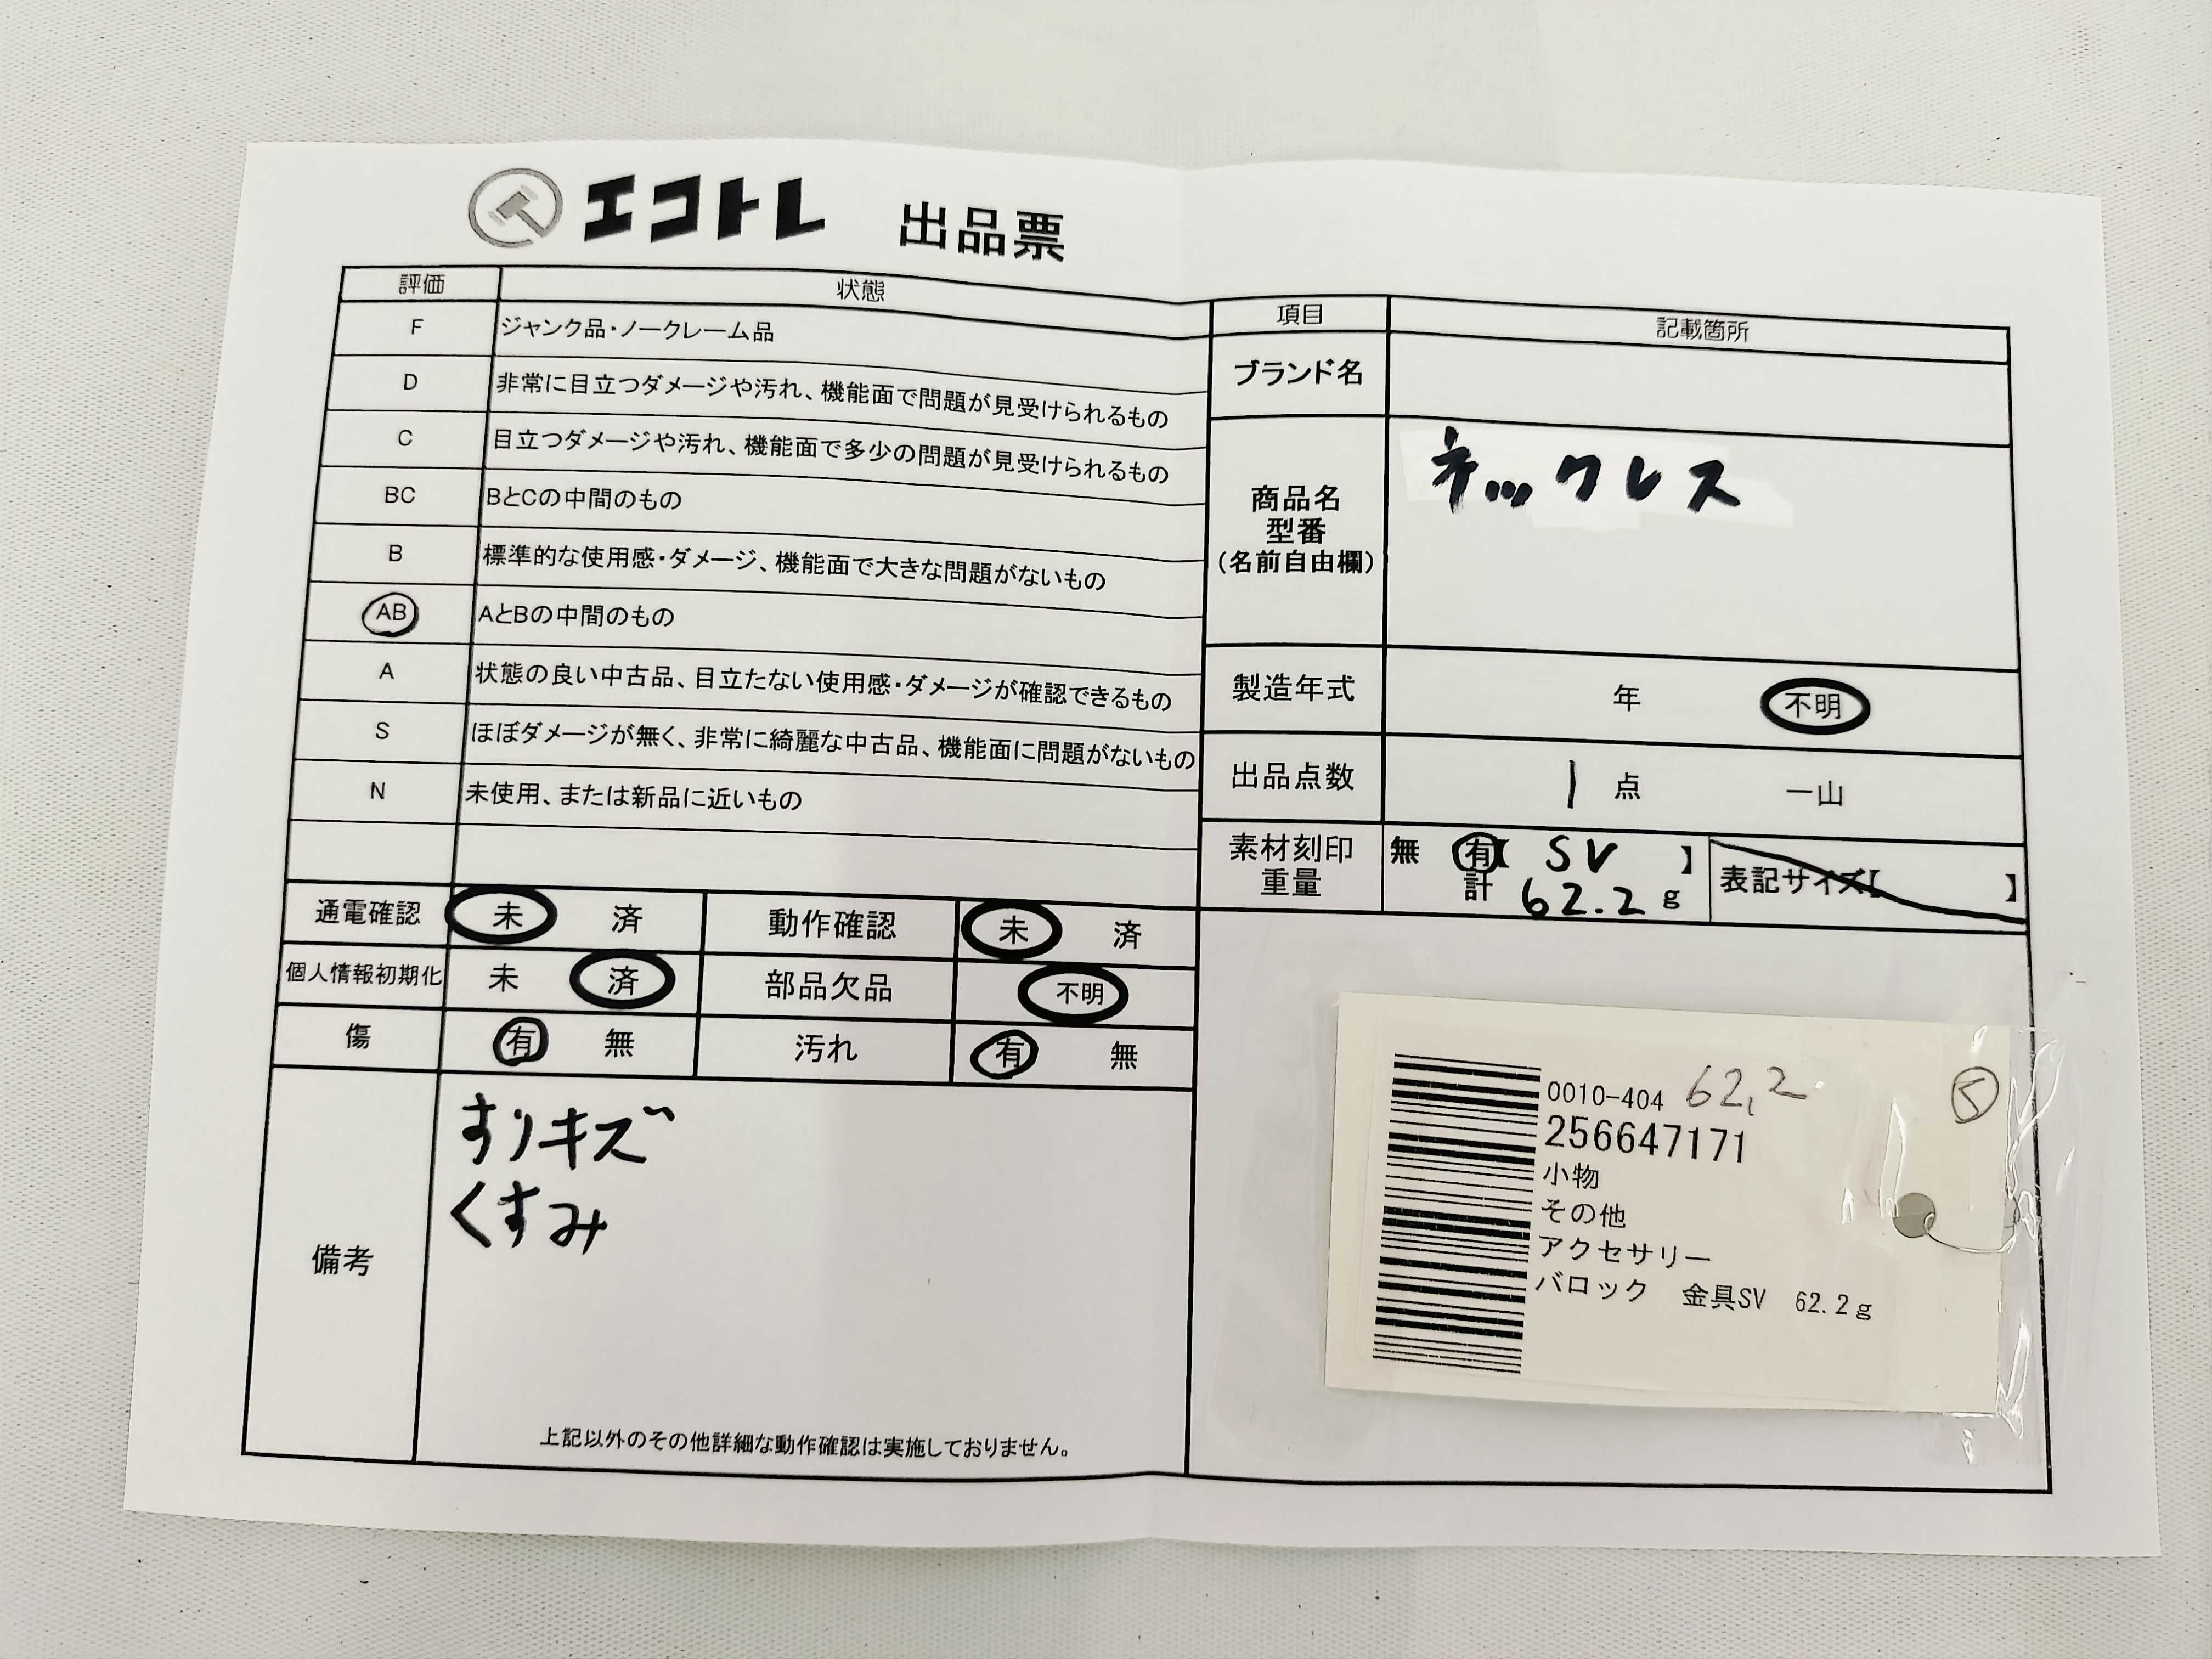 エコトレ 出品票
評価 状態
F ジャンク品・ノークレーム品
D 非常に目立つダメージや汚れ、機能面で問題が見受けられるもの
C 目立つダメージや汚れ、機能面で多少の問題が見受けられるもの
BC BとCの中間のもの
B 標準的な使用感・ダメージ、機能面で大きな問題がないもの
AB AとBの中間のもの
A 状態の良い中古品、目立たない使用感・ダメージが確認できるもの
S ほぼダメージが無く、非常に綺麗な中古品、機能面に問題がないもの
N 未使用、または新品に近いもの
通電確認 未 済 動作確認 未 済
個人情報初期化 未 済 部品欠品 不明
傷 有 無 汚れ 有 無
備考
すりキズ
くすみ
上記以外のその他詳細な動作確認は実施しておりません。
項目 記載箇所
ブランド名
商品名
型番
(名前自由欄)
ネックレス
製造年式 年 不明
出品点数 1 点 一山
素材刻印 無 有【 SV 】
重量 計 62.2 g
表記サイズ【 】
0010-404 62.2
5
256647171
小物
その他
アクセサリー
バロック 金具SV 62.2g